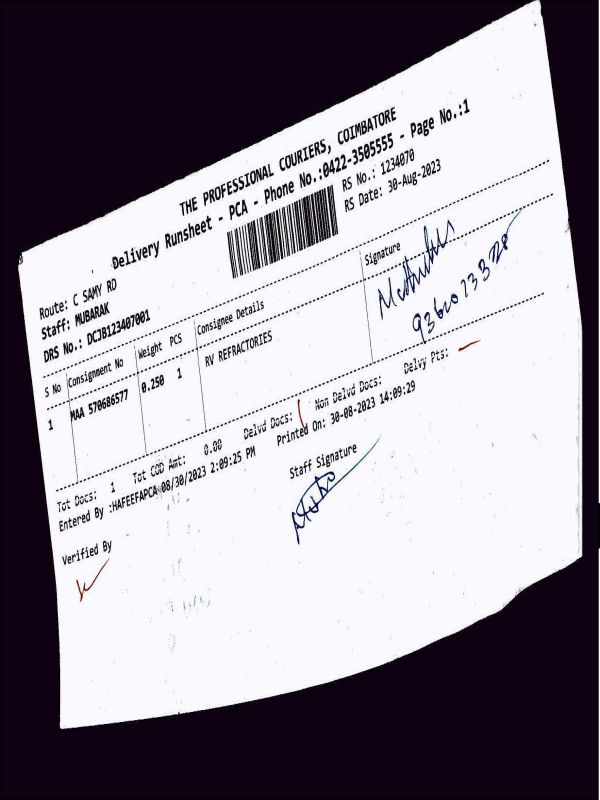 THE PROFESSIONAL COURIERS, COIMBATORE
Delivery Runsheet - PCA - Phone No.:0422-3505555 - Page No.:1
RS No.: 1234070
RS Date: 30-Aug-2023
Route: C SAMY RD
Staff: MUBARAK
DRS No.: DCJB123407001
S No Consignment No Weight PCS Consignee Details Signature
1 MAA 570686577 0.250 1 RV REFRACTORIES
Tot Docs: 1 Tot COD Amt: 0.00 Delvd Docs: Non Delvd Docs: Delvy Pts:
Entered By :HAFEEFAPCA-08/30/2023 2:09:25 PM Printed On: 30-08-2023 14:09:29
Staff Signature
Verified By